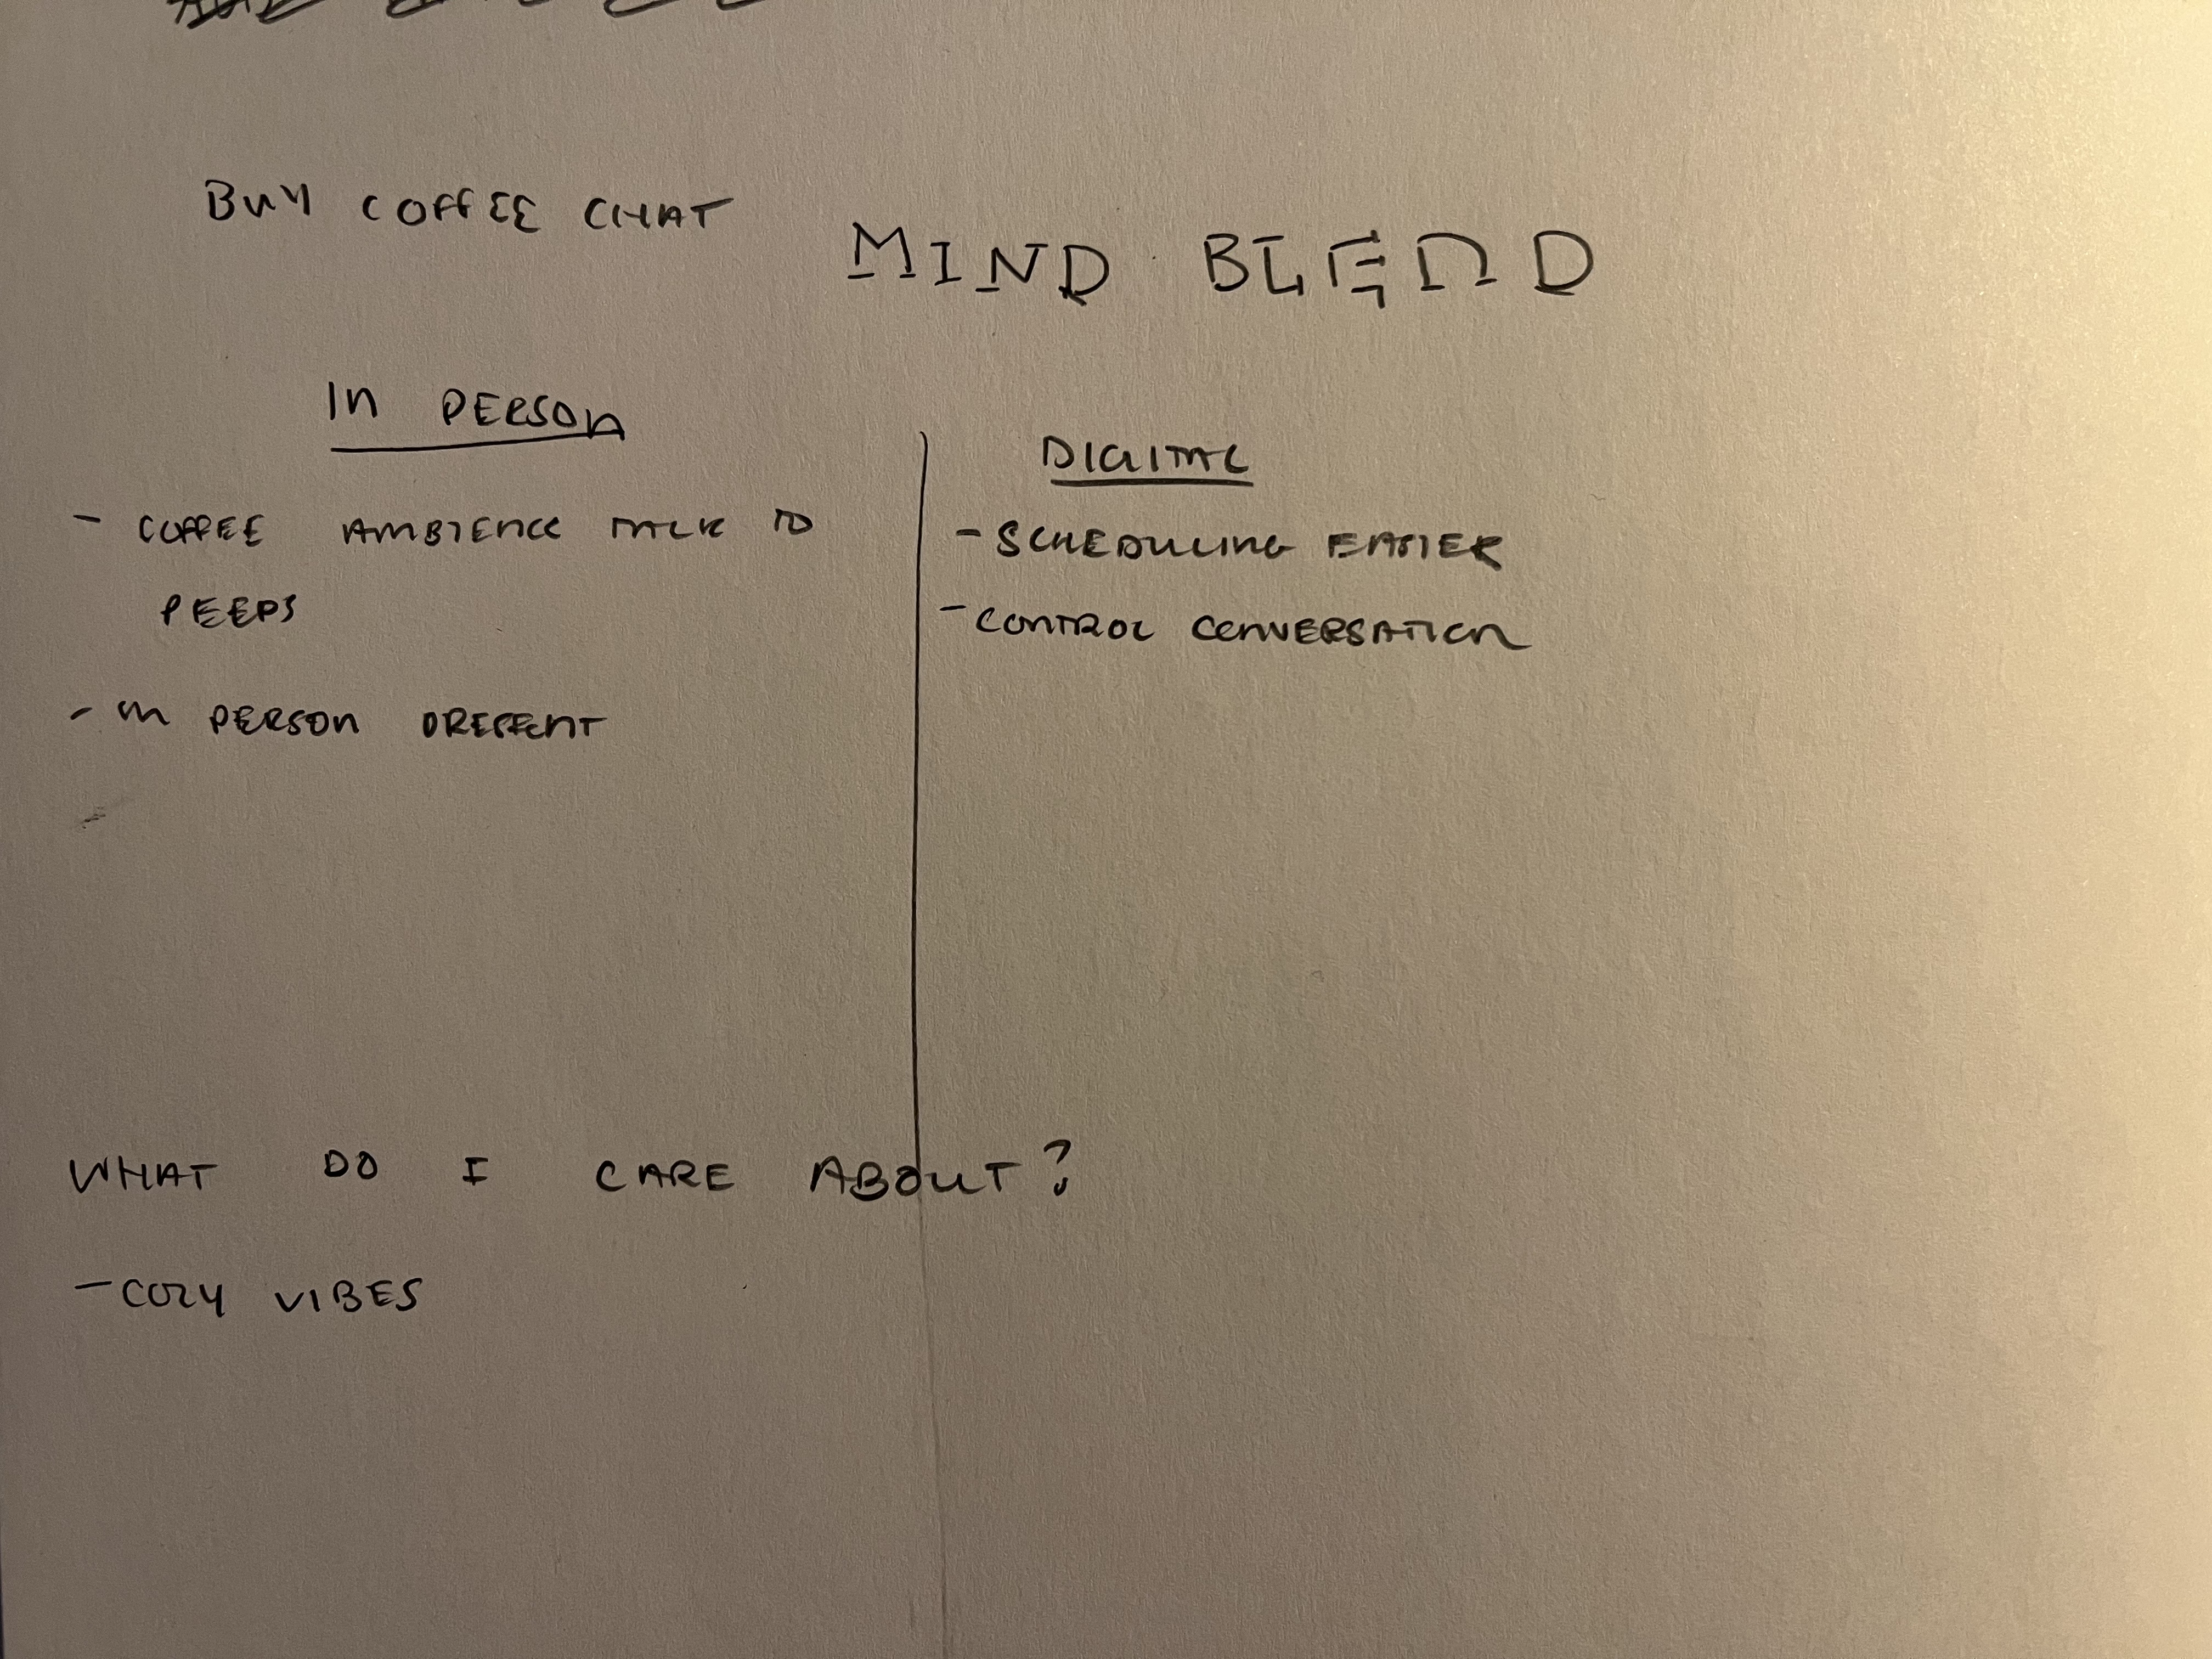 BUY COFFEE CHAT
MIND BLEND
IN PERSON
- COFFEE AMBIENCE TALK TO
PEEPS
- IN PERSON DIFFERENT
DIGITAL
- SCHEDULING EASIER
- CONTROL CONVERSATION
WHAT DO I CARE ABOUT?
- COZY VIBES